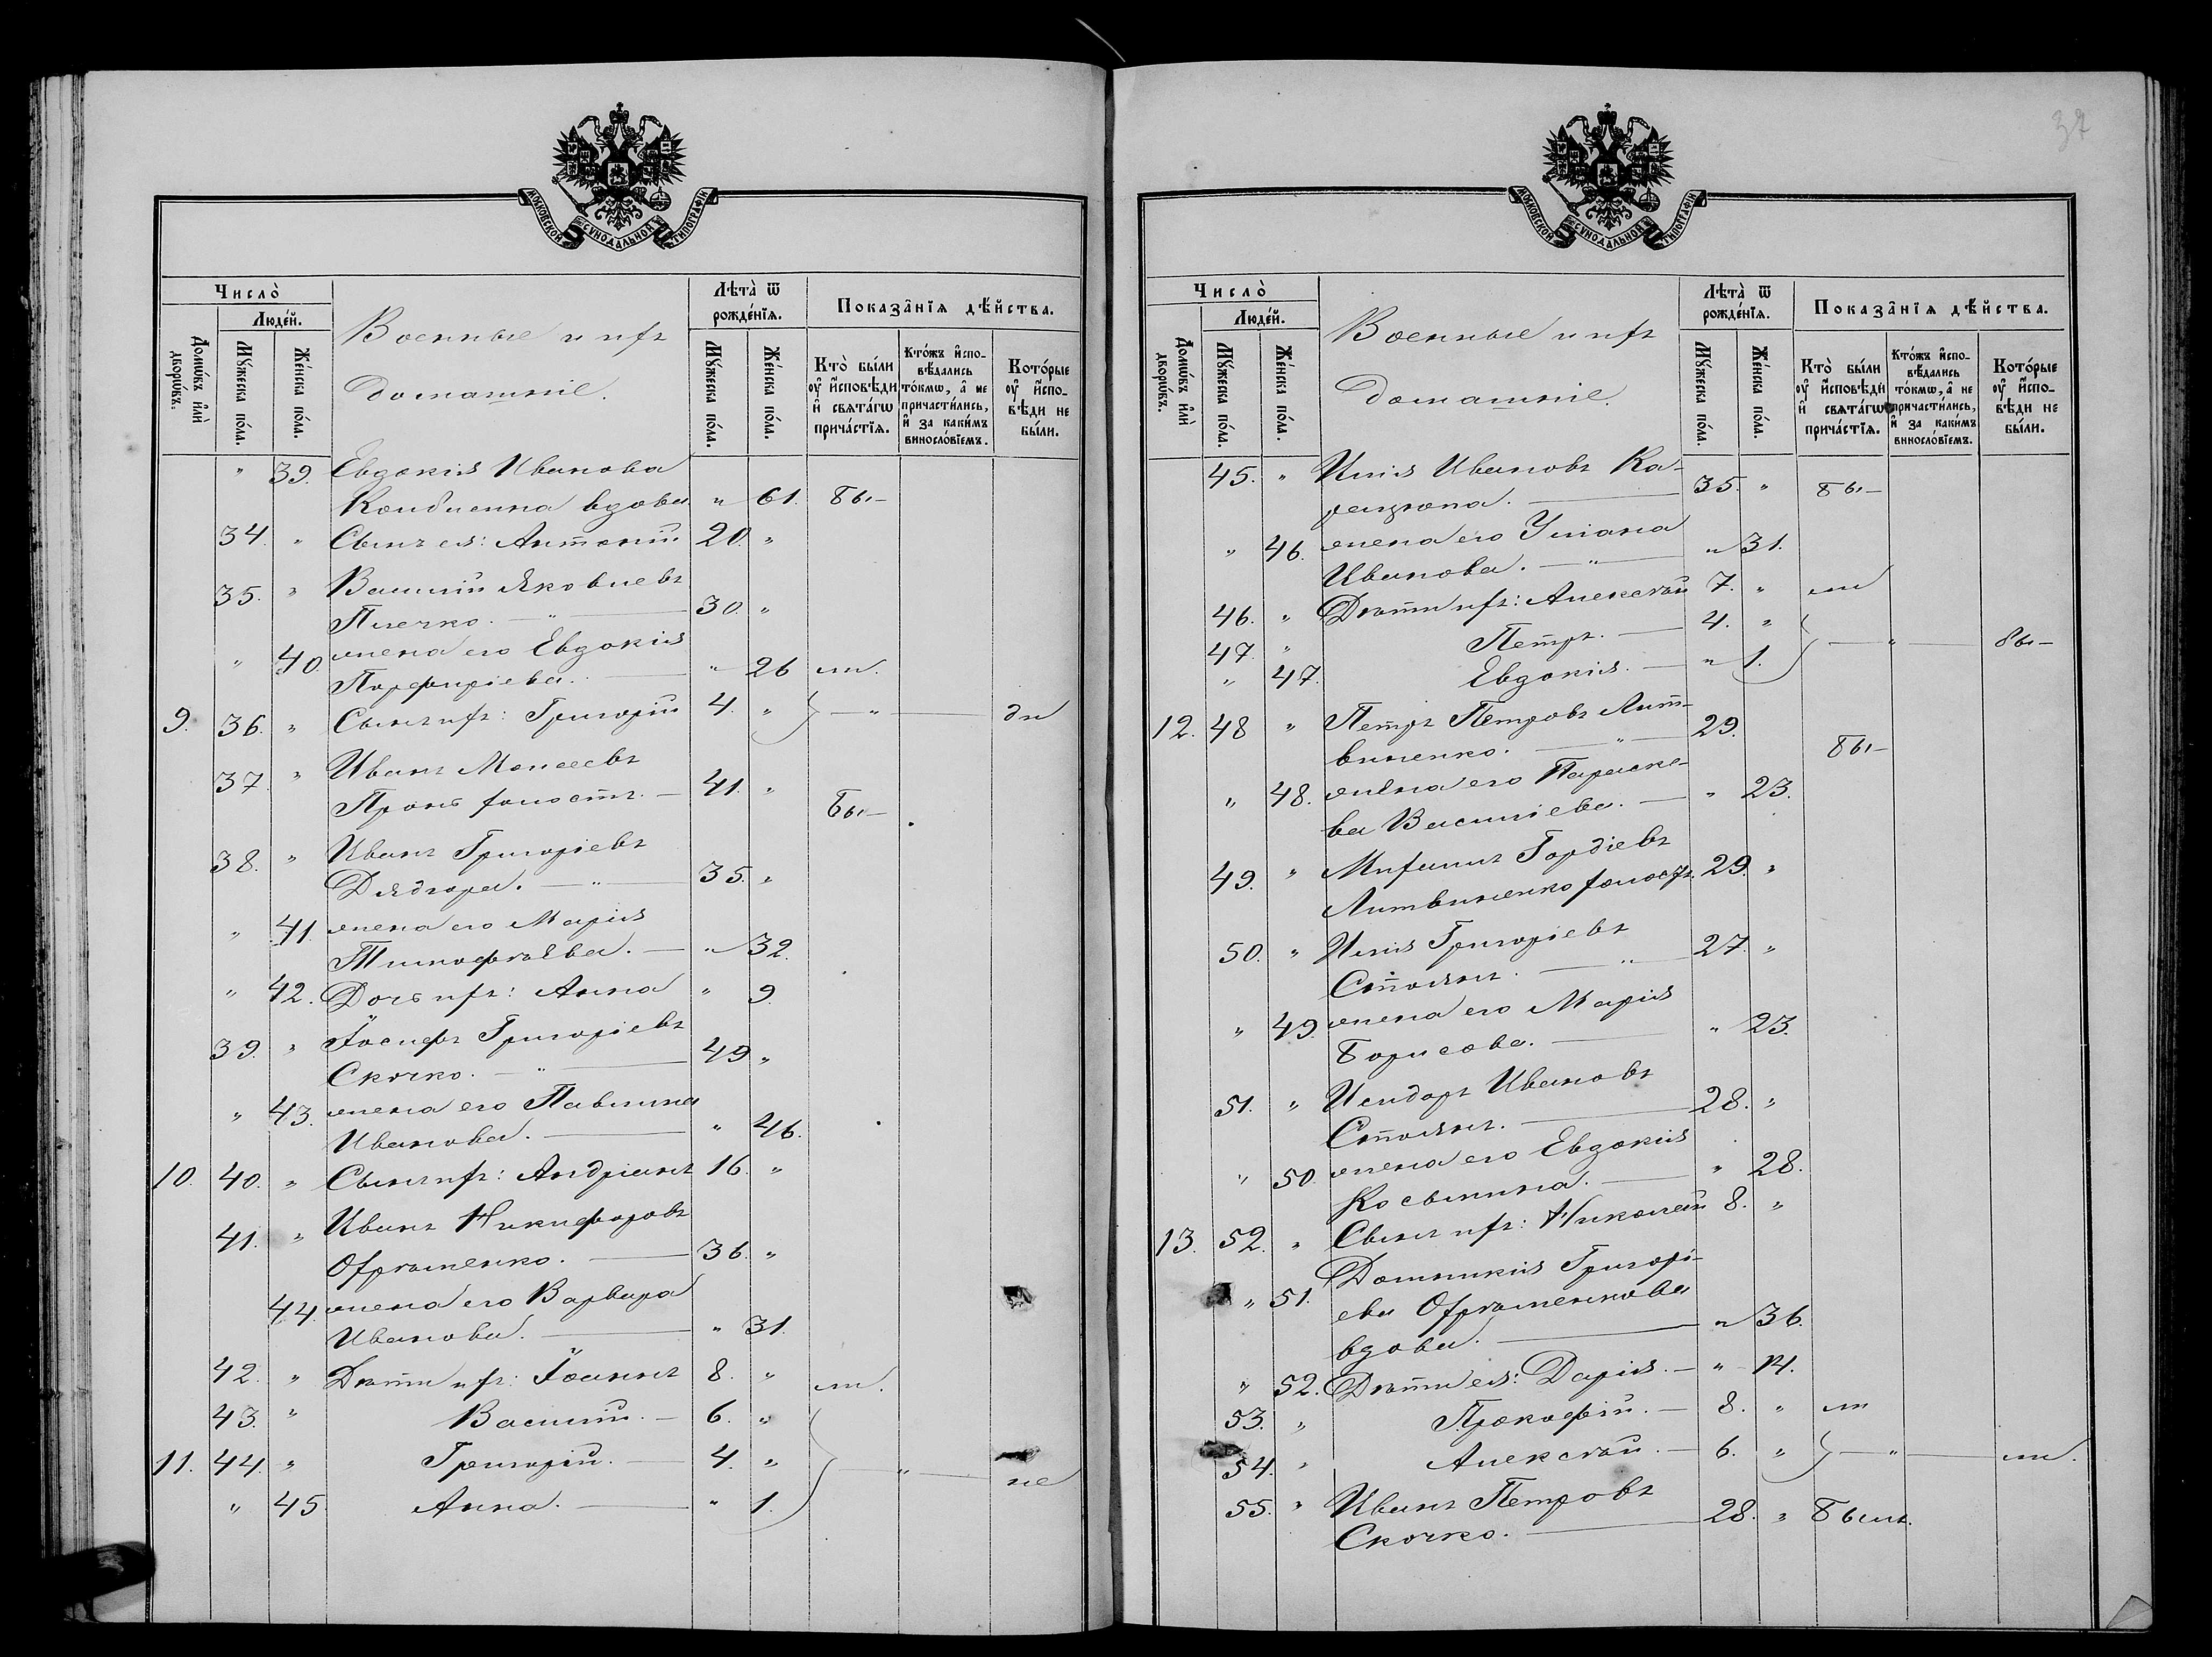 МОСКОВСКОЙ СѴНОДАЛЬНОЙ ТИПОГРАФІИ
Число̀
Люде́й.
Домѡ́въ и҆лѝ дворѡ́въ.
Мꙋ́жеска по́ла.
Же́нска по́ла.
Военные и ихъ
домашніе.
Лѣта̀ ѿ рожде́нїѧ.
Мꙋ́жеска по́ла.
Же́нска по́ла.
Показа̑нїѧ дѣ́йства.
Кто̀ бы́ли оу҆ и҆сповѣ́ди и҆ свѧта́гѡ прича́стїѧ.
Кто́жъ и҆спо­вѣ́дались то́кмѡ, а҆ не причасти́лись, и҆ за каки́мъ винословїемъ.
Кото́рые оу҆ и҆спо­вѣ́ди не бы́ли.
" 39. Евдокія Иванова
вдова " 61. бы-
34. " Сынъ ея: Антоній 20. "
35. " Василій Яковлевъ
Плечко. — " — 30. "
" 40. жена его Евдокія
Порфиріева. " 26 ли.
9. 36. " Сынъ ихъ: Григорій 4. " — " — ди
37. " Иванъ Моисеевъ
холостъ. — 41. " бы-
38. " Иванъ Григоріевъ
— " — 35. "
" 41. жена его Марія
Тимофѣева. — " 32.
" 42. Дочь ихъ: Анна " 9.
39. " Іосифъ Григоріевъ
Скочко. — " — 49 "
" 43. жена его Павлина
Иванова. — " 46.
10. 40. " Сынъ ихъ: Андріанъ 16. "
41. " Иванъ Никифоровъ
Охрѣменко. — 36. "
44. жена его Варвара
Иванова. — " 31.
42. " Дѣти ихъ: Іоаннъ 8. " ли.
43. " Василій. — 6. "
11. 44. " Григорій. — 4. " — " — не
" 45. Анна. — " 1.
37
МОСКОВСКОЙ СѴНОДАЛЬНОЙ ТИПОГРАФІИ
Число̀
Люде́й.
Домѡ́въ и҆лѝ дворѡ́въ.
Мꙋ́жеска по́ла.
Же́нска по́ла.
Военные и ихъ
домашніе
Лѣта̀ ѿ рожде́нїѧ.
Мꙋ́жеска по́ла.
Же́нска по́ла.
Показа̑нїѧ дѣ́йства.
Кто̀ бы́ли оу҆ и҆сповѣ́ди и҆ свѧта́гѡ прича́стїѧ.
Кто́жъ и҆спо­вѣ́дались то́кмѡ, а҆ не причасти́лись, и҆ за каки́мъ винословїемъ.
Кото́рые оу҆ и҆спо­вѣ́ди не бы́ли.
45. " Илія Ивановъ Ка-
рацюпа. — 35. " бы-
" 46. жена его Уліана
Иванова. — " — " 31.
46. " Дѣти ихъ: Алексѣй 7. " ли
47. " Петръ. — 4. "
" 47. Евдокія. — " 1. — " — бы-
12. 48 " Петръ Петровъ Лит-
виненко. — " — 29. бы-
" 48. жена его Параске-
ва Васильева. — " 23.
49. " Гордіевъ
Литвиненко холостъ. 29. "
50. " Илія Григоріевъ
Стоянъ. — " — 27. "
" 49. жена его Марія
Борисова. — " 23.
51. " Исидоръ Ивановъ
Стоянъ. — 28. "
" 50. жена его Евдокія
Косьмина. — " 28.
13. 52. " Сынъ ихъ: Николай 8. "
" 51. Домникія Григорі-
ева Охрѣменкова
вдова. — " 36.
" 52. Дѣти ея: Дарія. — " 14.
53. " Прокофій. — 8. " ли
54. " Алексѣй. — 6. " — " — ли.
55. " Иванъ Петровъ
Скочко. — 28. " былъ.